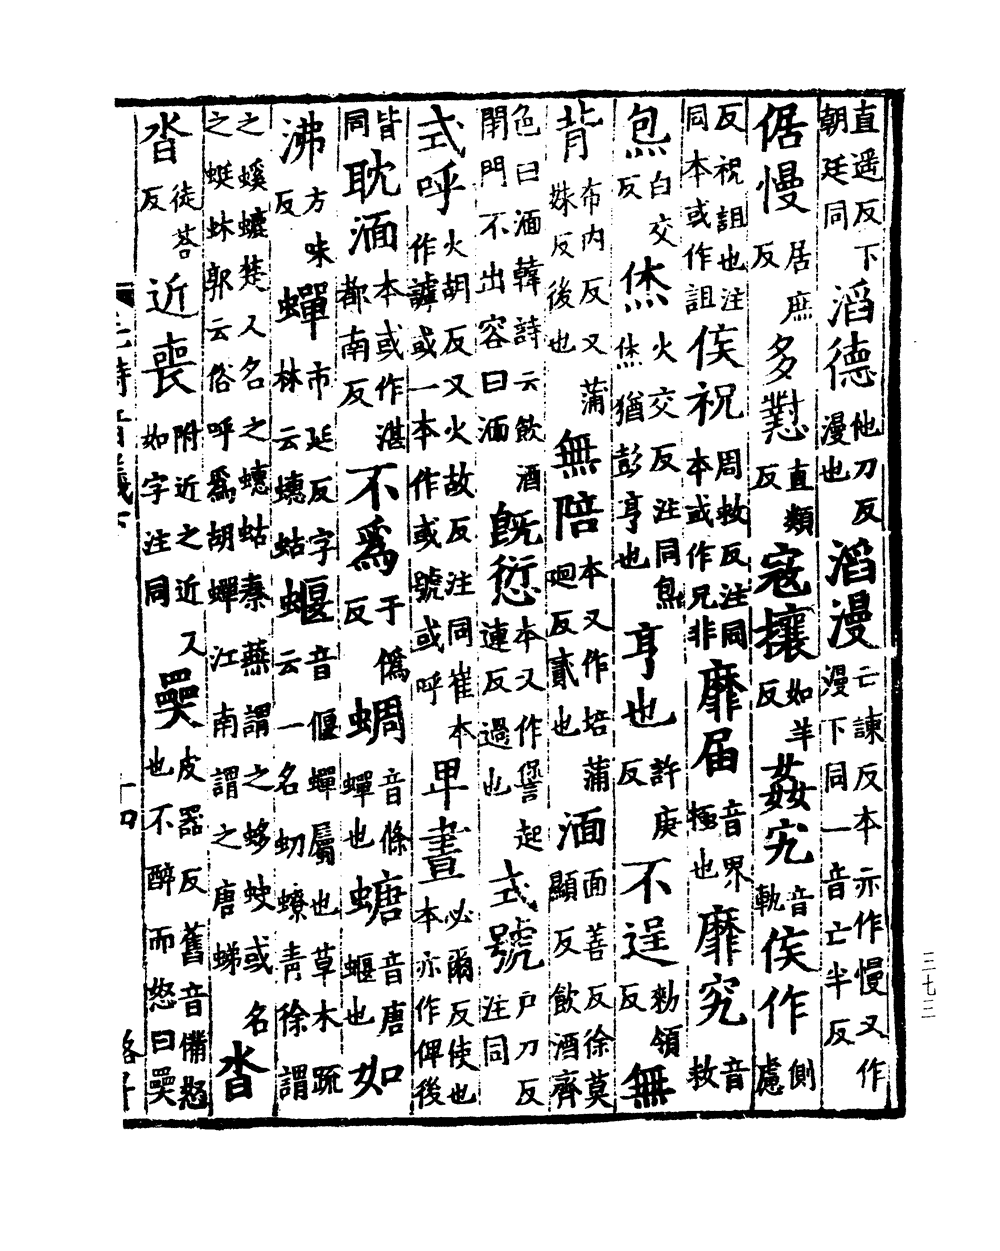 直遥反下朝廷同滔德他刀反漫也滔漫亡諫反本亦作慢又作漫下同一音亡半反
倨慢居庶反多懟直類反寇攘如羊反姦宄音軌侯作側慮
反祝詛也注同本或作詛侯祝周救反注同本或作呪非靡届音界極也靡究音救
炰白交反烋火交反注同炰烋猶彭亨也亨也許庚反不逞勑領反無
背布内反又蒲妹反後也無陪本又作培蒲廻反貳也湎面善反徐莫顯反飲酒齊
色曰湎韓詩云飲酒閉門不出容曰湎旣愆本又作諐起連反過也式號户刀反注同
式呼火胡反又火故反注同崔本作謼或一本作或號或呼卑晝必爾反使也本亦作俾後
皆同耽湎本或作湛都南反不爲于僞反蜩音條蟬也螗音唐蝘也如
沸方味反蟬市延反字林云蟪蛄蝘音偃蟬屬也草木疏云一名虭蟟青徐謂
之螇螰楚人名之蟪蛄秦燕謂之蛥蚗或名之蜓蚞郭云俗呼爲胡蟬江南謂之唐𧋘沓
沓徒荅反近喪附近之近又如字注同奰皮器反舊音備怒也不醉而怒曰奰
三七三